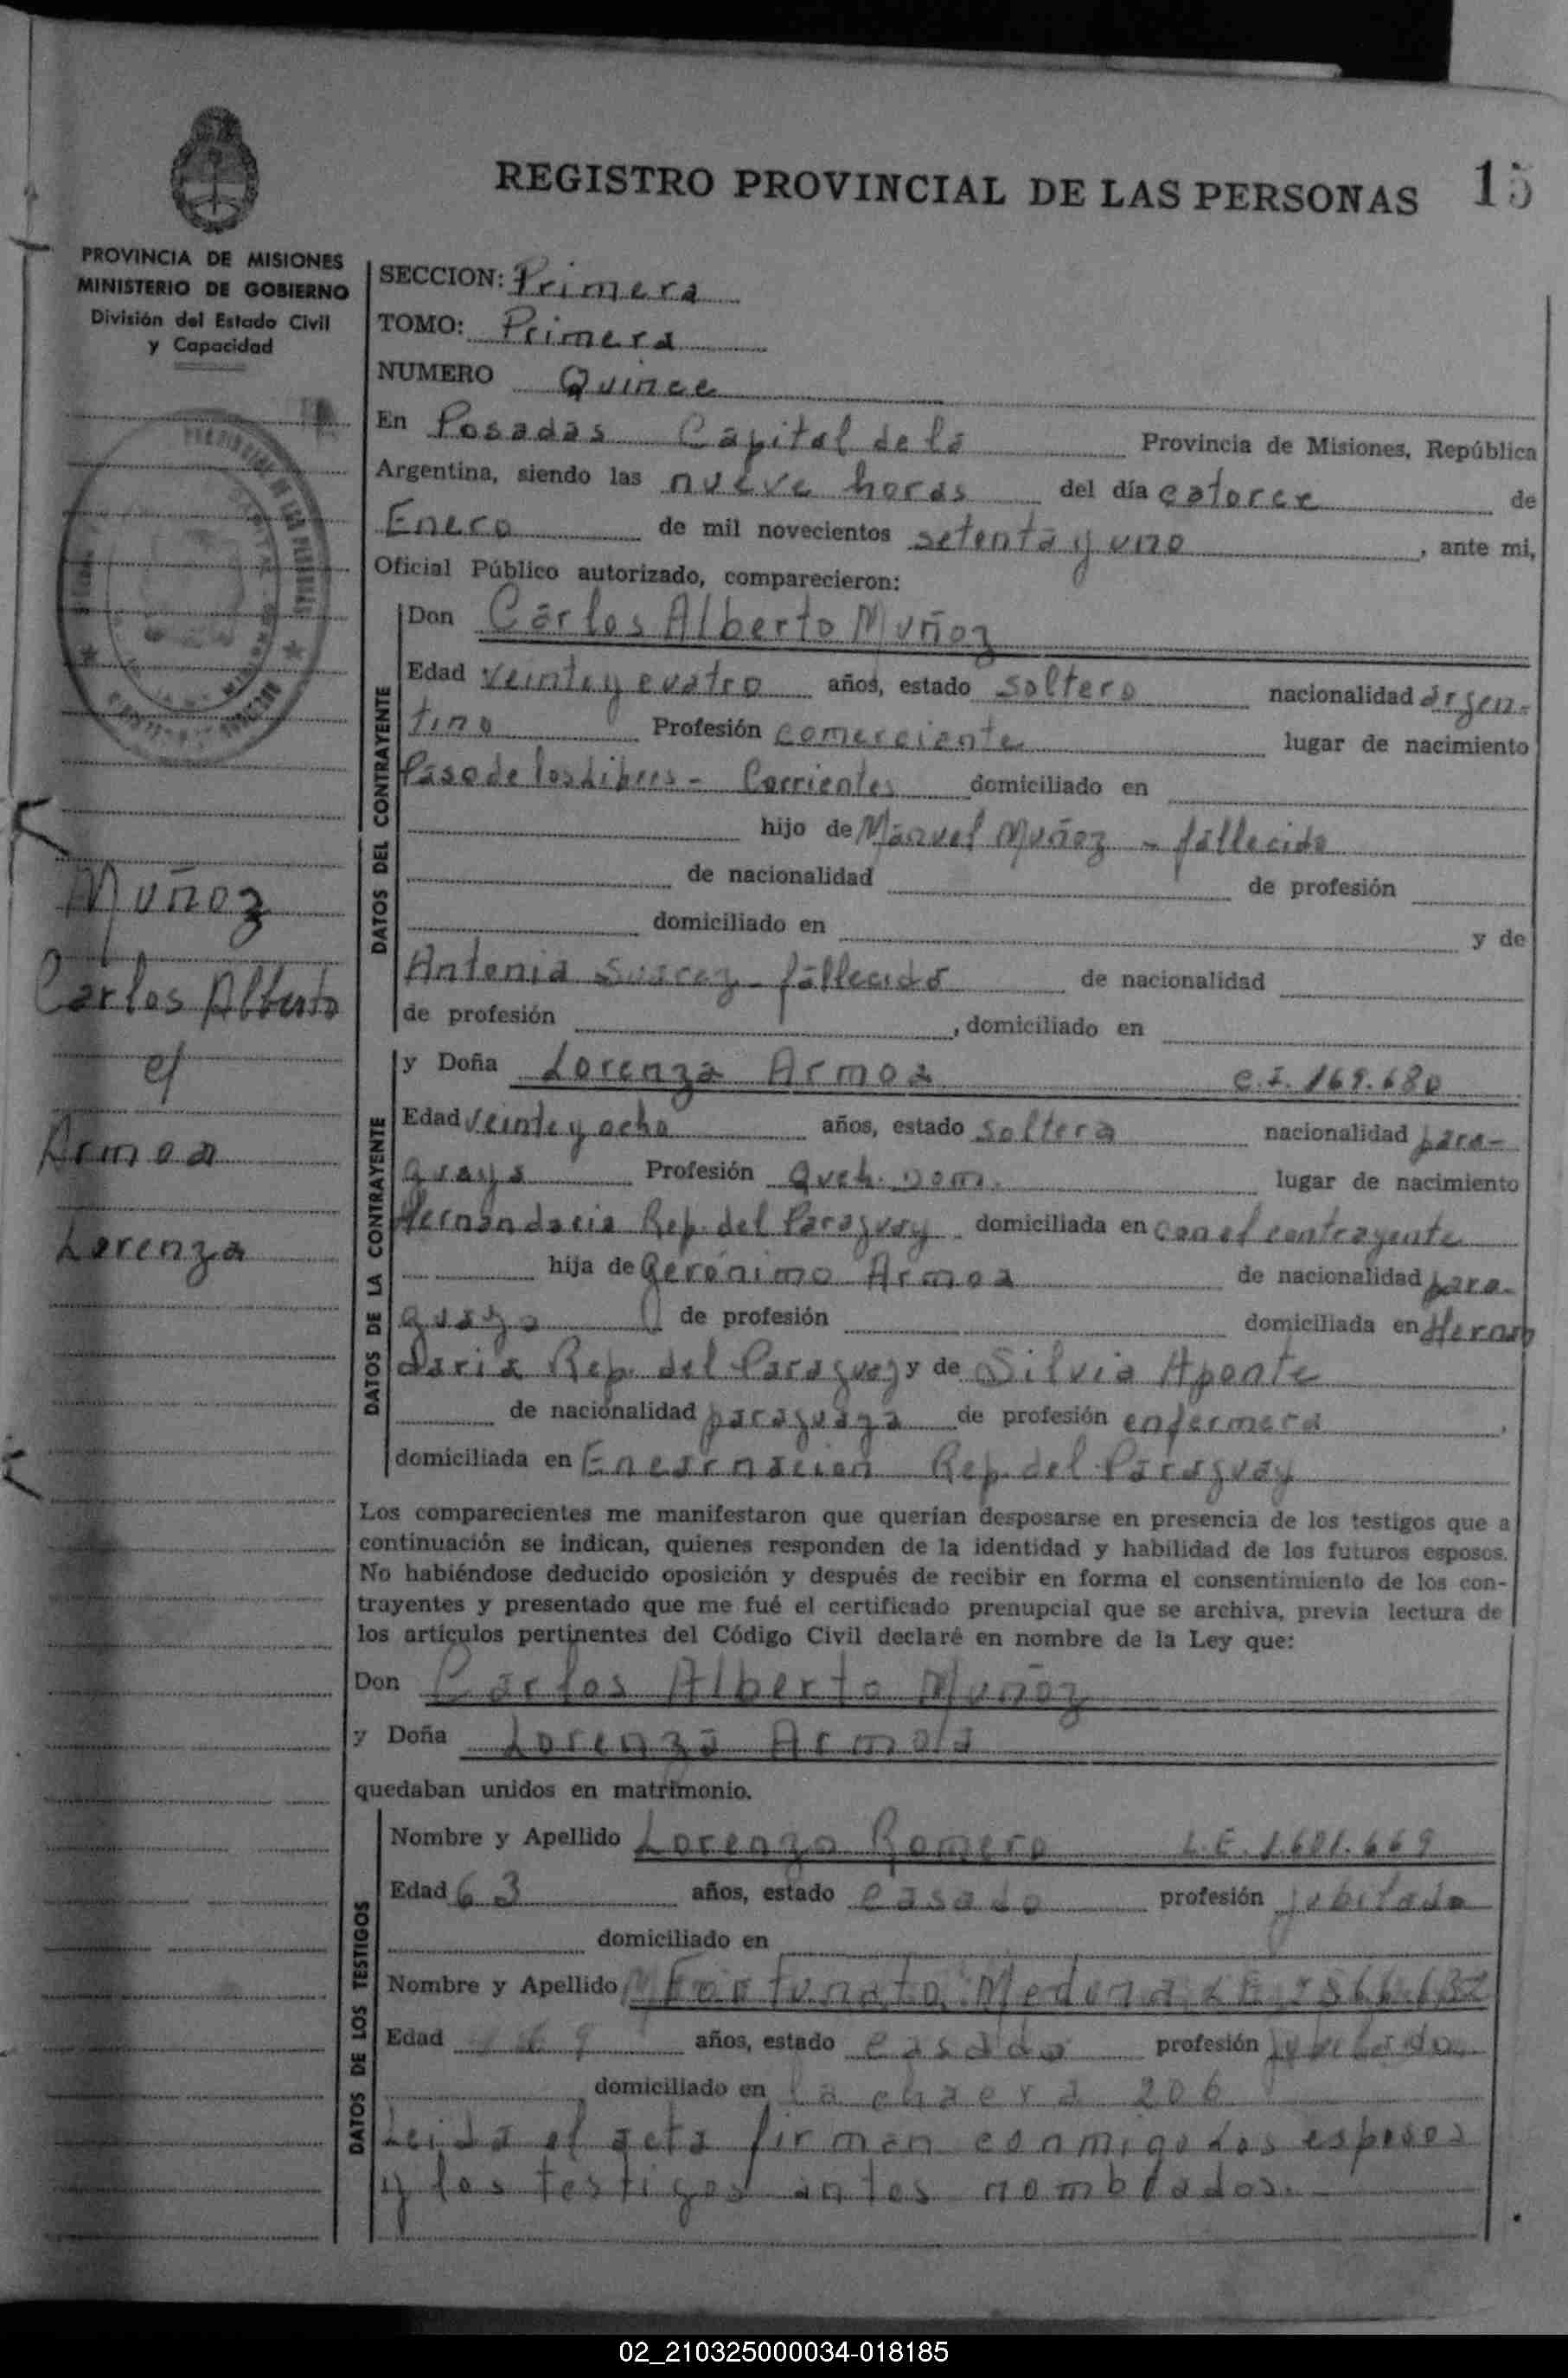 REGISTRO PROVINCIAL DE LAS PERSONAS 15
PROVINCIA DE MISIONES
MINISTERIO DE GOBIERNO
División del Estado Civil
y Capacidad
SECCION: Primera
TOMO: Primera
NUMERO Quince
En Posadas Capital de la Provincia de Misiones, República
Argentina, siendo las nueve horas del día catorce de
Enero de mil novecientos setenta y uno, ante mi,
Oficial Público autorizado, comparecieron:
DATOS DEL CONTRAYENTE
Don Carlos Alberto Muñoz
Edad veinte y cuatro años, estado soltero nacionalidad argen-
tino Profesión comerciante lugar de nacimiento
Paso de los Libres - Corrientes domiciliado en
hijo de Manuel Muñoz - fallecido
de nacionalidad de profesión
domiciliado en y de
Antonia Suarez - fallecido de nacionalidad
de profesión , domiciliado en
Muñoz
Carlos Alberto
c/
Armoa
Lorenza
DATOS DE LA CONTRAYENTE
y Doña Lorenza Armoa C.I. 169.680
Edad veinte y ocho años, estado soltera nacionalidad para-
guaya Profesión Queh. Dom. lugar de nacimiento
Hernandaria Rep. del Paraguay domiciliada en con el contrayente
hija de Gerónimo Armoa de nacionalidad para-
guayo de profesión domiciliada en Hernan
daria Rep. del Paraguay y de Silvia Aponte
de nacionalidad paraguaya de profesión enfermera,
domiciliada en Encarnacion Rep. del Paraguay
Los comparecientes me manifestaron que querían desposarse en presencia de los testigos que a
continuación se indican, quienes responden de la identidad y habilidad de los futuros esposos.
No habiéndose deducido oposición y después de recibir en forma el consentimiento de los con-
trayentes y presentado que me fué el certificado prenupcial que se archiva, previa lectura de
los artículos pertinentes del Código Civil declaré en nombre de la Ley que:
Don Carlos Alberto Muñoz
y Doña Lorenza Armoa
quedaban unidos en matrimonio.
DATOS DE LOS TESTIGOS
Nombre y Apellido Lorenzo Romero L.E. 1.681.669
Edad 63 años, estado casado profesión jubilado
domiciliado en
Nombre y Apellido Fortunato Medina
Edad 69 años, estado casado profesión jubilado
domiciliado en la chacra 206
Leida el acta firman conmigo los esposos
y los testigos antes nombrados.
02_210325000034-018185